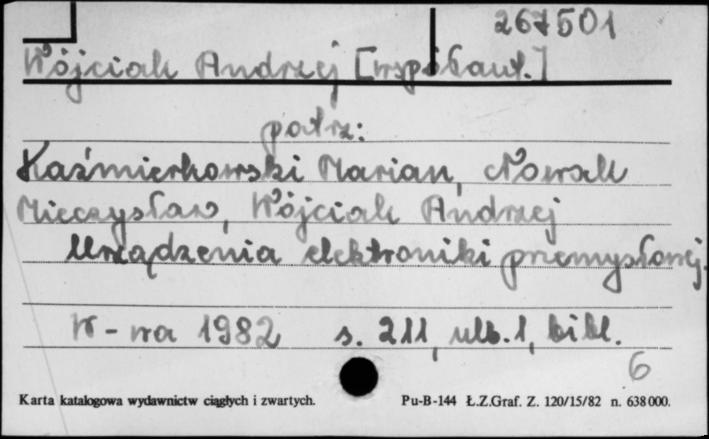 267501
Wójciak Andrzej [współaut.]
patrz:
Kaźmierkowski Marian, Nowak
Mieczysław, Wójciak Andrzej
Urządzenia elektroniki przemysłowej.
W-wa 1982 s. 211, ulb. 1, bibl.
6
Karta katalogowa wydawnictw ciągłych i zwartych. Pu-B-144 Ł.Z.Graf. Z. 120/15/82 n. 638000.